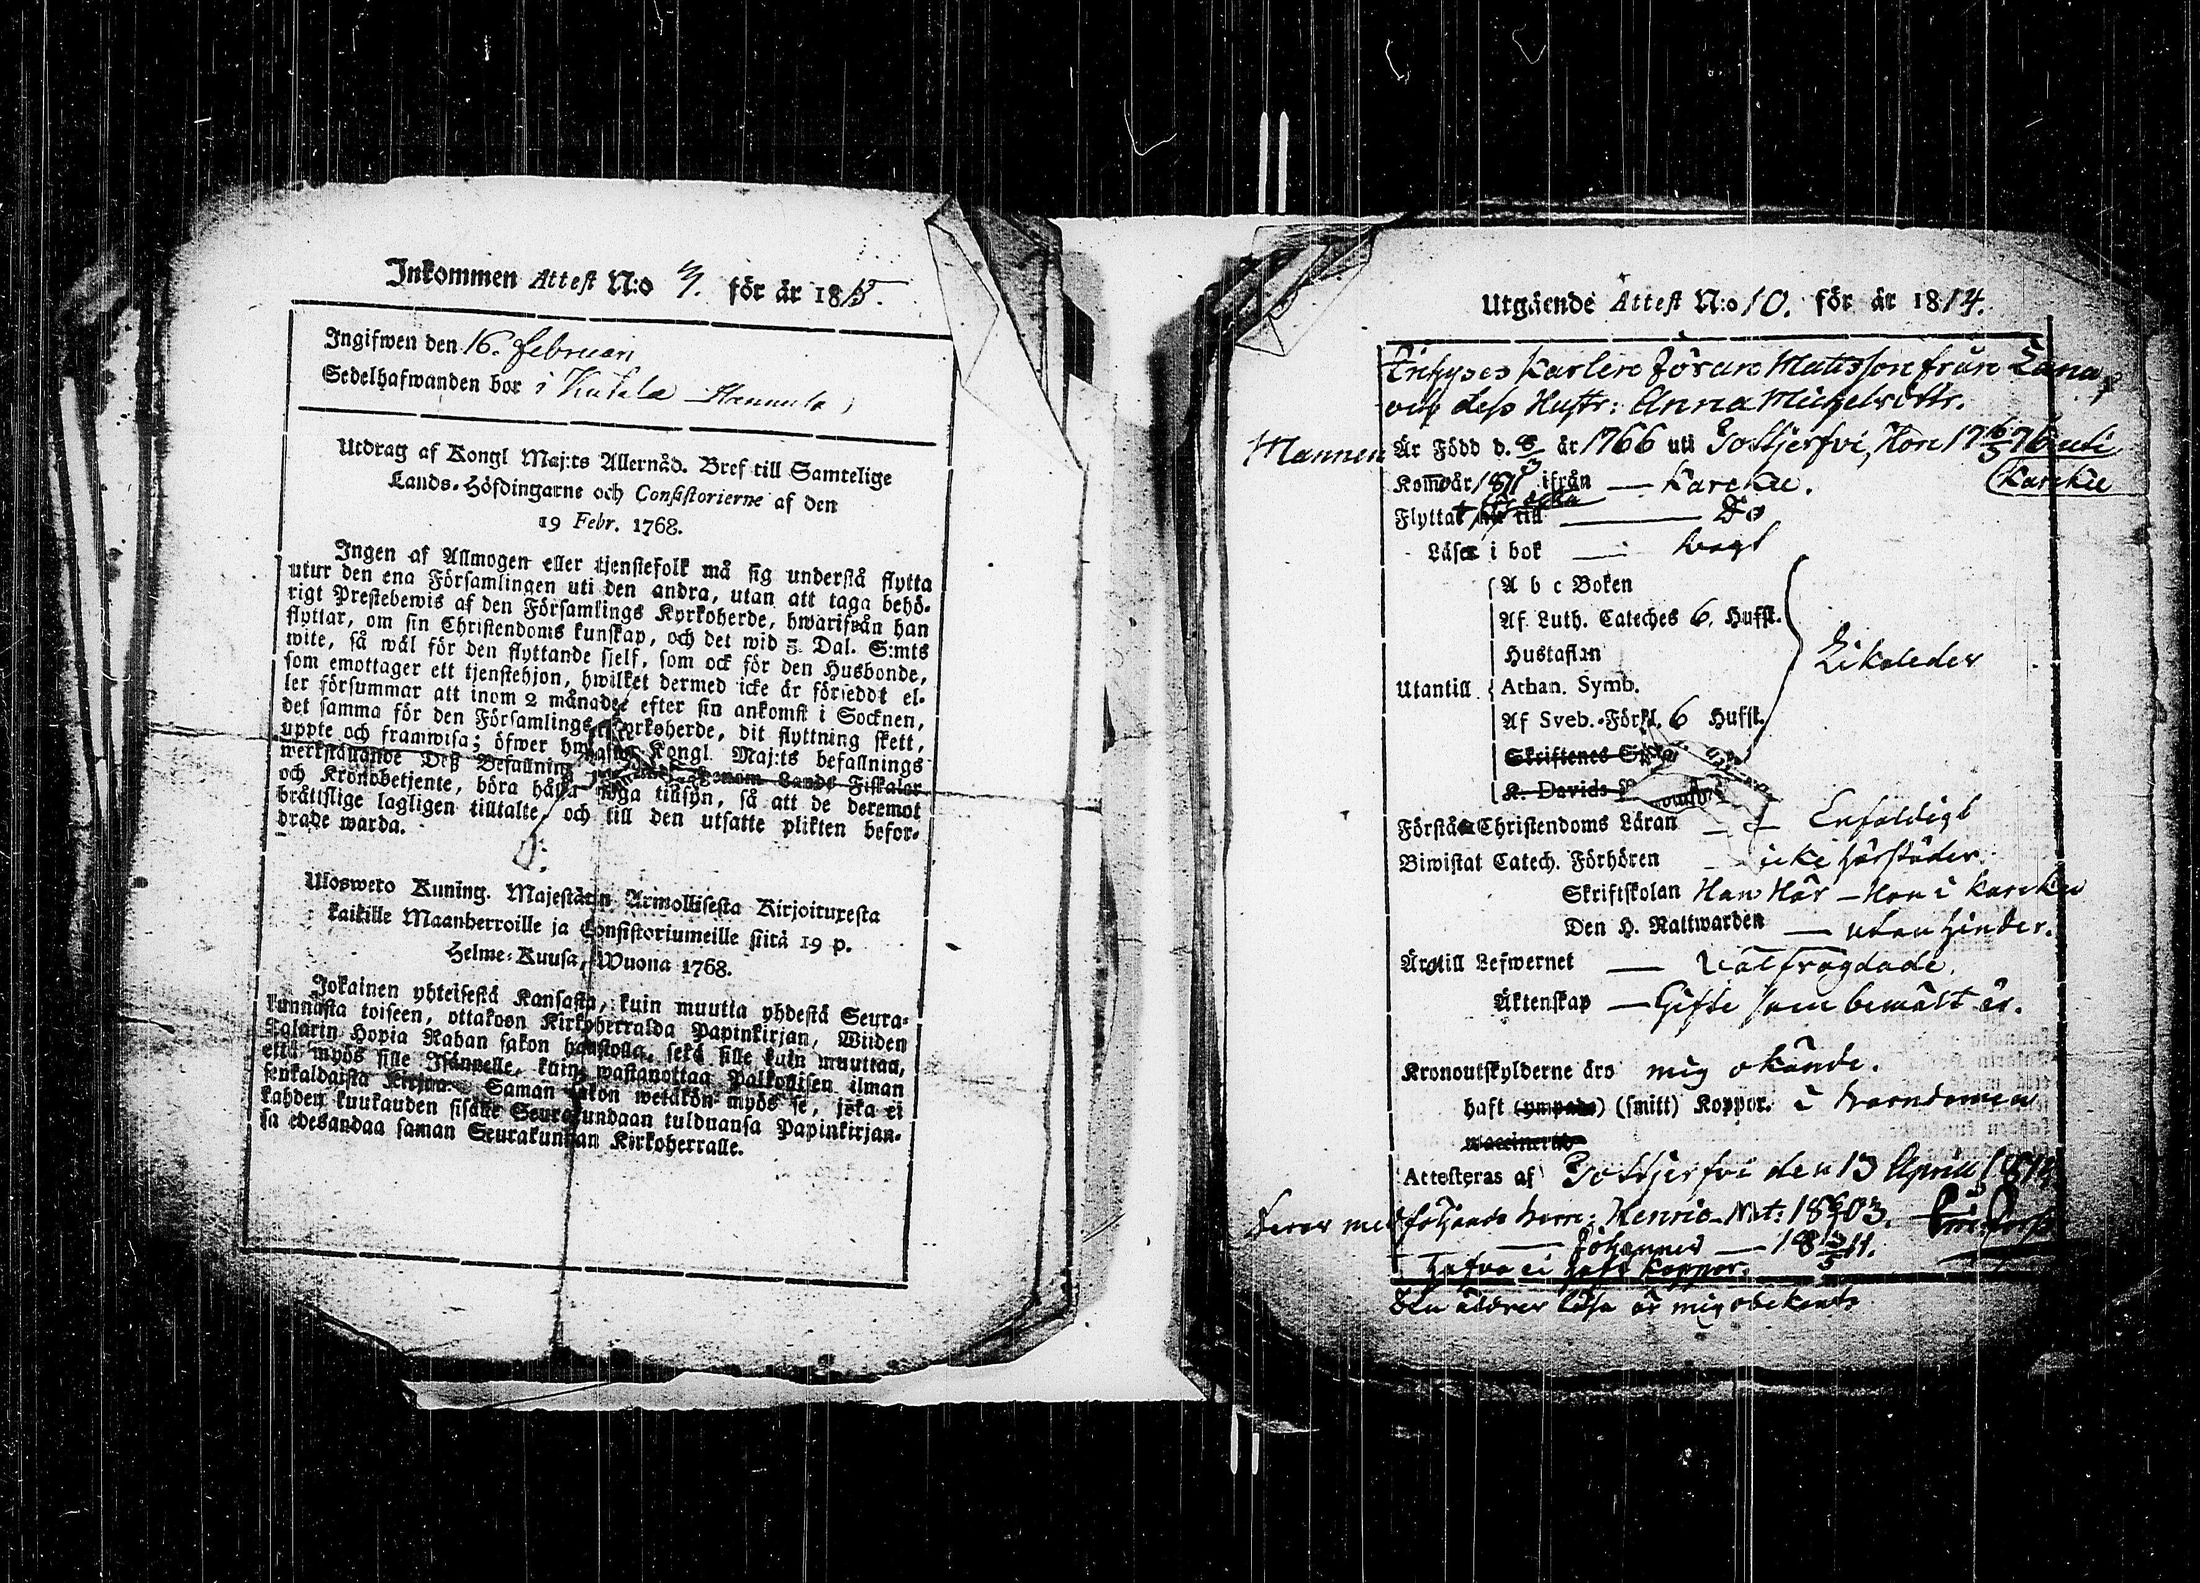 Inkommen Attest N:o 4. för är 1815.
Ingifwen den 16. februari
Sedelhafwanden bor i Kutala Hannula
Utdrag af Kongl Maj:ts Allernåd. Bref till Samtelige
Lands-Höfdingarne och Consistorierne af den
19 Febr. 1768.
Ingen af Allmogen eller tjenstefolk må sig understå flytta
utur den ena Församlingen uti den andra, utan att taga behö-
rigt Prestebewis af den Församlings Kyrkoherde, hwarifrån han
flyttar, om sin Christendoms kunskap, och det wid 5 Dal. S:mts
wite, så wäl för den flyttande sjelf, som ock för den Husbonde,
som emottager ett tjenstehjon, hwilket dermed icke är förseddt el-
ler försummar att inom 2 månader efter sin ankomst i Socknen,
det samma för den Församlings Kyrkoherde, dit flyttning skett,
uppte och framwisa; öfwer hwilket Kongl. Maj:ts befallnings
werkställande Deß Befallning genom Lands Fiskaler
och Kronobetjente, böra hålla noga tillsyn, så att de deremot
bråttslige lagligen tilltalte, och till den utsatte plikten befor-
drade warda.
Uloswero Kuning. Majestätin Armollisesta Kirjoituxesta
kaikille Maanherroille ja Consistoriumeille siitä 19 p.
Helme-Kuusa, Wuona 1768.
Jokainen yhteisestä Kansasta, kuin muutta yhdestä Seura-
kunnasta toiseen, ottakoon Kirkoherralda Papinkirjan, Wiiden
Talarin Hopia Rahan sakon haastolla, sekä sille kuin muuttaa,
että myös sille Isännelle, kuin wastanottaa Palkollisen ilman
senkaldaista Kirjaa. Saman sakon wetäkön myös se, joka ei
kahden kuukauden sisälle Seurakundaan tulduansa Papinkirjan-
sa edesandaa saman Seurakunnan Kirkoherralle.
Utgående Attest N:o 10. för är 1814.
Inhyses Karlen Jöran Matsson från Lana
och dess Hustr: Anna Michelsdottr.
Mannen Är Född d. 8/3 år 1766 uti Pottjerfvi, Hon 17 6/5 76 uti
Karcku
Kom år 1811 ifrån — Karcku.
Flyttat till — Do
Läser i bok — swagt
A b c Boken
Af Luth. Cateches 6. Hufst.
Hustaflan
Utantill Athan. Symb.
Likaledes
Af Sveb. Förkl. 6 Hufst.
Skriftenes
K. Davids
Förstå Christendoms Läran — Enfaldigt
Biwistat Catech. Förhören — icke härstädes.
Skriftskolan Han Här — Hon i Karcku
Den H. Nattwarden — utan hinder.
Äro till Lefwernet — Välfrägdade.
Äktenskap — Gifte som bemält är.
Kronoutskylderne äro mig okände.
haft (ympade) (smitt) Koppor. i barndomen
waccinerite
Attesteras af Pottjerfvi den 13 April 1814
följande barn: Henric Nat: 18 03.
— Johannes — 18 11.
Hafva ei haft koppor.
Den äldres läsa är mig obekant